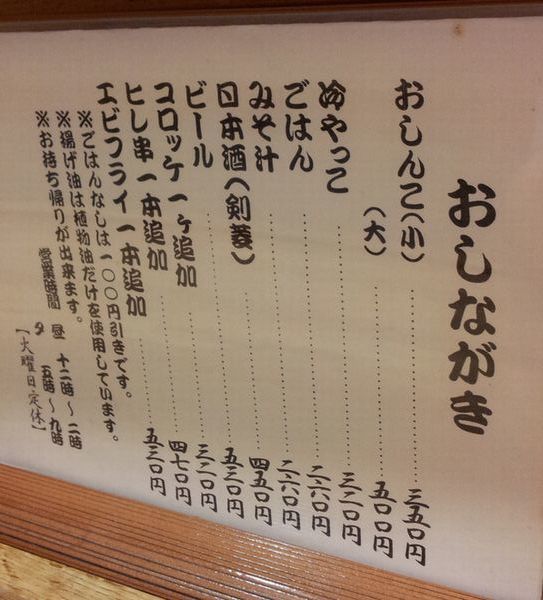 おしながき
おしんこ(小)‥‥‥‥三五〇円
(大)‥‥‥‥五〇〇円
冷やっこ‥‥‥‥三二〇円
ごはん‥‥‥‥二六〇円
みそ汁‥‥‥‥二六〇円
日本酒(剣菱)‥‥‥‥四五〇円
ビール‥‥‥‥五三〇円
コロッケ一ヶ追加‥‥‥‥三二〇円
ヒレ串一本追加‥‥‥‥四七〇円
エビフライ一本追加‥‥‥‥五三〇円
※ごはんなしは一〇〇円引きです。
※揚げ油は植物油だけを使用しています。
※お持ち帰りが出来ます。
営業時間 昼 十二時~二時
夕 五時~九時
【火曜日定休】